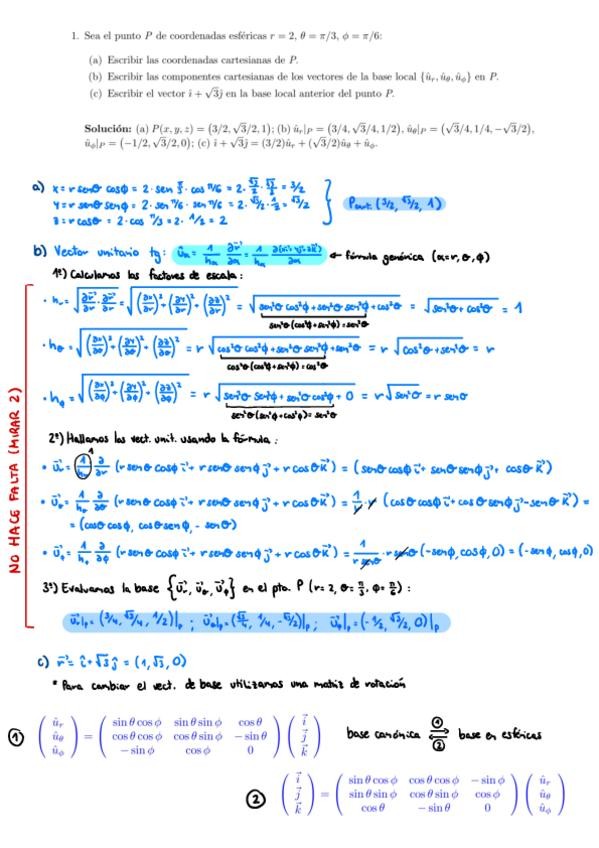 1. Sea el punto P de coordenadas esféricas r = 2, θ = π/3, ϕ = π/6:
(a) Escribir las coordenadas cartesianas de P.
(b) Escribir las componentes cartesianas de los vectores de la base local {û_r, û_θ, û_ϕ} en P.
(c) Escribir el vector î + √3ĵ en la base local anterior del punto P.
Solución: (a) P(x, y, z) = (3/2, √3/2, 1); (b) û_r|_P = (3/4, √3/4, 1/2), û_θ|_P = (√3/4, 1/4, −√3/2),
û_ϕ|_P = (−1/2, √3/2, 0); (c) î + √3ĵ = (3/2)û_r + (√3/2)û_θ + û_ϕ.
a) x = r senθ cosϕ = 2 · sen π/3 · cos π/6 = 2 · √3/2 · √3/2 = 3/2
y = r senθ senϕ = 2 · sen π/6 · sen π/6 = 2 · √3/2 · 1/2 = √3/2
z = r cosθ = 2 · cos π/3 = 2 · 1/2 = 2
P cart. (3/2, √3/2, 1)
b) Vector unitario tg: û_α = 1/h_α ∂r⃗/∂α = 1/h_α ∂(xi⃗+yj⃗+zk⃗)/∂α ← fórmula genérica (α=r, θ, ϕ)
1º) Calculamos los factores de escala:
· h_r = √(∂r⃗/∂r · ∂r⃗/∂r) = √((∂x/∂r)² + (∂y/∂r)² + (∂z/∂r)²) = √(sen²θ cos²ϕ + sen²θ sen²ϕ + cos²θ) = √(sen²θ + cos²θ) = 1
sen²θ (cos²ϕ + sen²ϕ) = sen²θ
· h_θ = √((∂x/∂θ)² + (∂y/∂θ)² + (∂z/∂θ)²) = r √(cos²θ cos²ϕ + cos²θ sen²ϕ + sen²θ) = r √(cos²θ + sen²θ) = r
cos²θ (cos²ϕ + sen²ϕ) = cos²θ
· h_ϕ = √((∂x/∂ϕ)² + (∂y/∂ϕ)² + (∂z/∂ϕ)²) = r √(sen²θ sen²ϕ + sen²θ cos²ϕ + 0) = r √(sen²θ) = r senθ
sen²θ (sen²ϕ + cos²ϕ) = sen²θ
NO HACE FALTA (MIRAR 2)
2º) Hallamos los vect. unit. usando la fórmula:
· u⃗_r = 1/h_r ∂/∂r (r senθ cosϕ i⃗ + r senθ senϕ j⃗ + r cosθ k⃗) = (senθ cosϕ i⃗ + senθ senϕ j⃗, cosθ k⃗)
· u⃗_θ = 1/h_θ ∂/∂θ (r senθ cosϕ i⃗ + r senθ senϕ j⃗ + r cosθ k⃗) = 1/r · r (cosθ cosϕ i⃗ + cosθ senϕ j⃗ − senθ k⃗) =
= (cosθ cosϕ, cosθ senϕ, − senθ)
· u⃗_ϕ = 1/h_ϕ ∂/∂ϕ (r senθ cosϕ i⃗ + r senθ senϕ j⃗ + r cosθ k⃗) = 1/(r senθ) · r senθ (−senϕ, cosϕ, 0) = (−senϕ, cosϕ, 0)
3º) Evaluamos la base {u⃗_r, u⃗_θ, u⃗_ϕ} en el pto. P (r = 2, θ = π/3, ϕ = π/6) :
u⃗_r|_P = (3/4, √3/4, 1/2)|_P ; u⃗_θ|_P = (√3/4, 1/4, −√3/2)|_P ; u⃗_ϕ|_P = (−1/2, √3/2, 0)|_P
c) r⃗ = î + √3 ĵ = (1, √3, 0)
* Para cambiar el vect. de base utilizamos una matriz de rotación
① (û_r û_θ û_ϕ) = (sin θ cos ϕ sin θ sin ϕ cos θ
cos θ cos ϕ cos θ sin ϕ − sin θ
− sin ϕ cos ϕ 0) (i⃗ j⃗ k⃗)
base canónica ① ⇌ ② base en esféricas
② (i⃗ j⃗ k⃗) = (sin θ cos ϕ cos θ cos ϕ − sin ϕ
sin θ sin ϕ cos θ sin ϕ cos ϕ
cos θ − sin θ 0) (û_r û_θ û_ϕ)